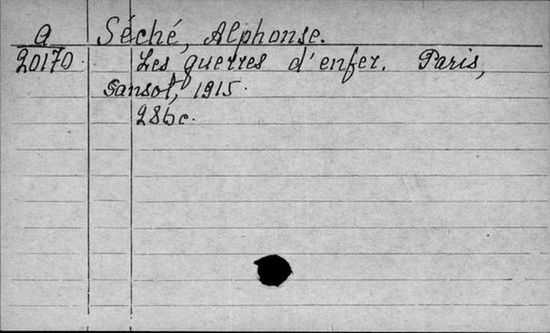 a Séché, Alphonse.
20170. Les guerres d'enfer. Paris,
Sansot, 1915.
286c.